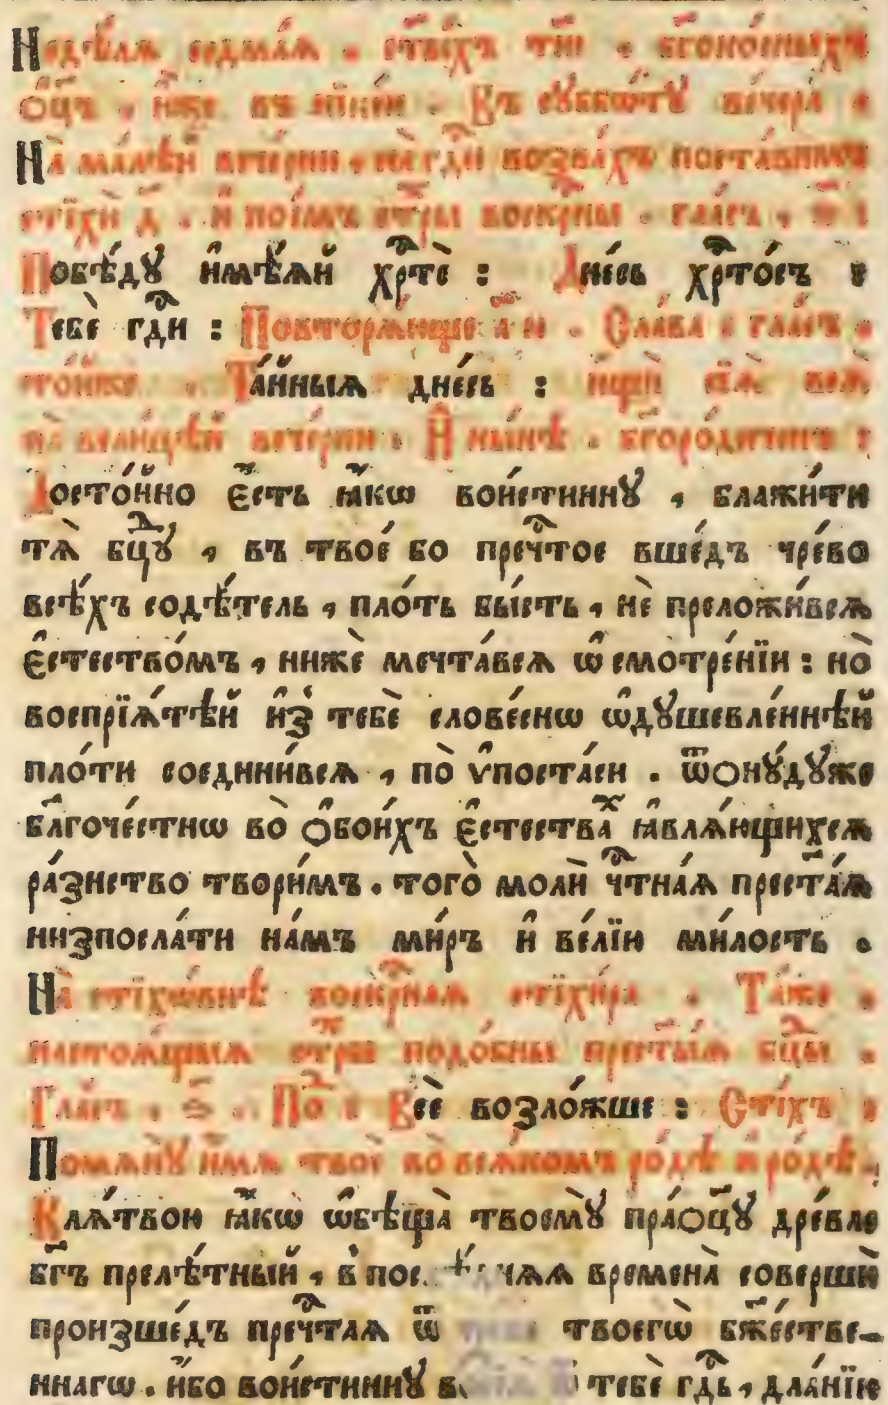 Недѣ́лѧ седма́ѧ . ст҃ы́хъ ті҃и . бг҃оно́сныхъ
Ѻ҆ц҃ъ . и҆́же въ нїке́и . Въ сꙋббѡ́тꙋ ве́чера .
На̀ ма́лѣй вече́рни , на гдⷭ҇и возва́хъ поста́вимъ
стїхѝ д҃ . и҆ пое́мъ стⷯры воскрⷭ҇ны . гла́съ .
Побѣ́дꙋ и҆мѣ́ѧй хрⷭ҇тѐ : Дне́сь хрⷭ҇то́съ :
Тебѐ гдⷭ҇и : Повторѧ́юще а҃ ю . Сла́ва . гла́съ .
то́йже . Та́йныѧ дне́сь : и҆щѝ сїѧ̀ всѧ̀
на вели́цѣй вече́рни . И҆ ны́нѣ . бг҃оро́диченъ :
Досто́йно є҆́сть ꙗ҆́кѡ вои́стиннꙋ , блажи́ти
тѧ̀ бцⷣꙋ , въ твое́ бо пречⷭ҇тое вше́дъ чре́во
всѣ́хъ содѣ́тель , пло́ть бы́сть , нѐ преложи́всѧ
є҆стество́мъ , нижѐ мечта́всѧ ѡ҆ смотре́нїи : но̀
воспрїѧ́тѣй и҆з̾ тебѐ слове́снѡ ѡ҆дꙋшевле́ннѣй
пло́ти соедини́всѧ , по̀ ѵ҆поста́си . ѿѻнꙋ́дꙋже
бл҃гоче́стнѡ во̀ ѻ҆бои́хъ є҆стества̑хъ ꙗ҆влѧ́ющихсѧ
ра́знство твори́мъ . того̀ молѝ чⷭ҇тна́ѧ прест҃а́ѧ
низпосла́ти на́мъ ми́ръ и҆ ве́лїю ми́лость .
На̀ стїхо́внѣ воскрⷭ҇наѧ стїхи́ра . Та́же .
настоѧ́щыѧ стⷯры подо́бны прест҃ы́ѧ бцⷣы .
Гла́съ . ѕ҃ . Поⷣ : Всѐ возло́жше : Сті́хъ :
Помѧнꙋ̀ и҆́мѧ твоѐ во̀ всѧ́комъ ро́дѣ и҆ ро́дѣ .
Клѧ́твою ꙗ҆́кѡ ѡ҆бѣща̀ твоемꙋ̀ пра́ѻц҃ꙋ дре́вле
бг҃ъ прелѣ́тный , в времена̀ соверши
произше́дъ пречⷭ҇таѧ ѿ твоегѡ̀ бж҃е́стве-
ннагѡ . и҆́бо вои́стиннꙋ тебѐ гдⷭ҇ь , дла́нїю